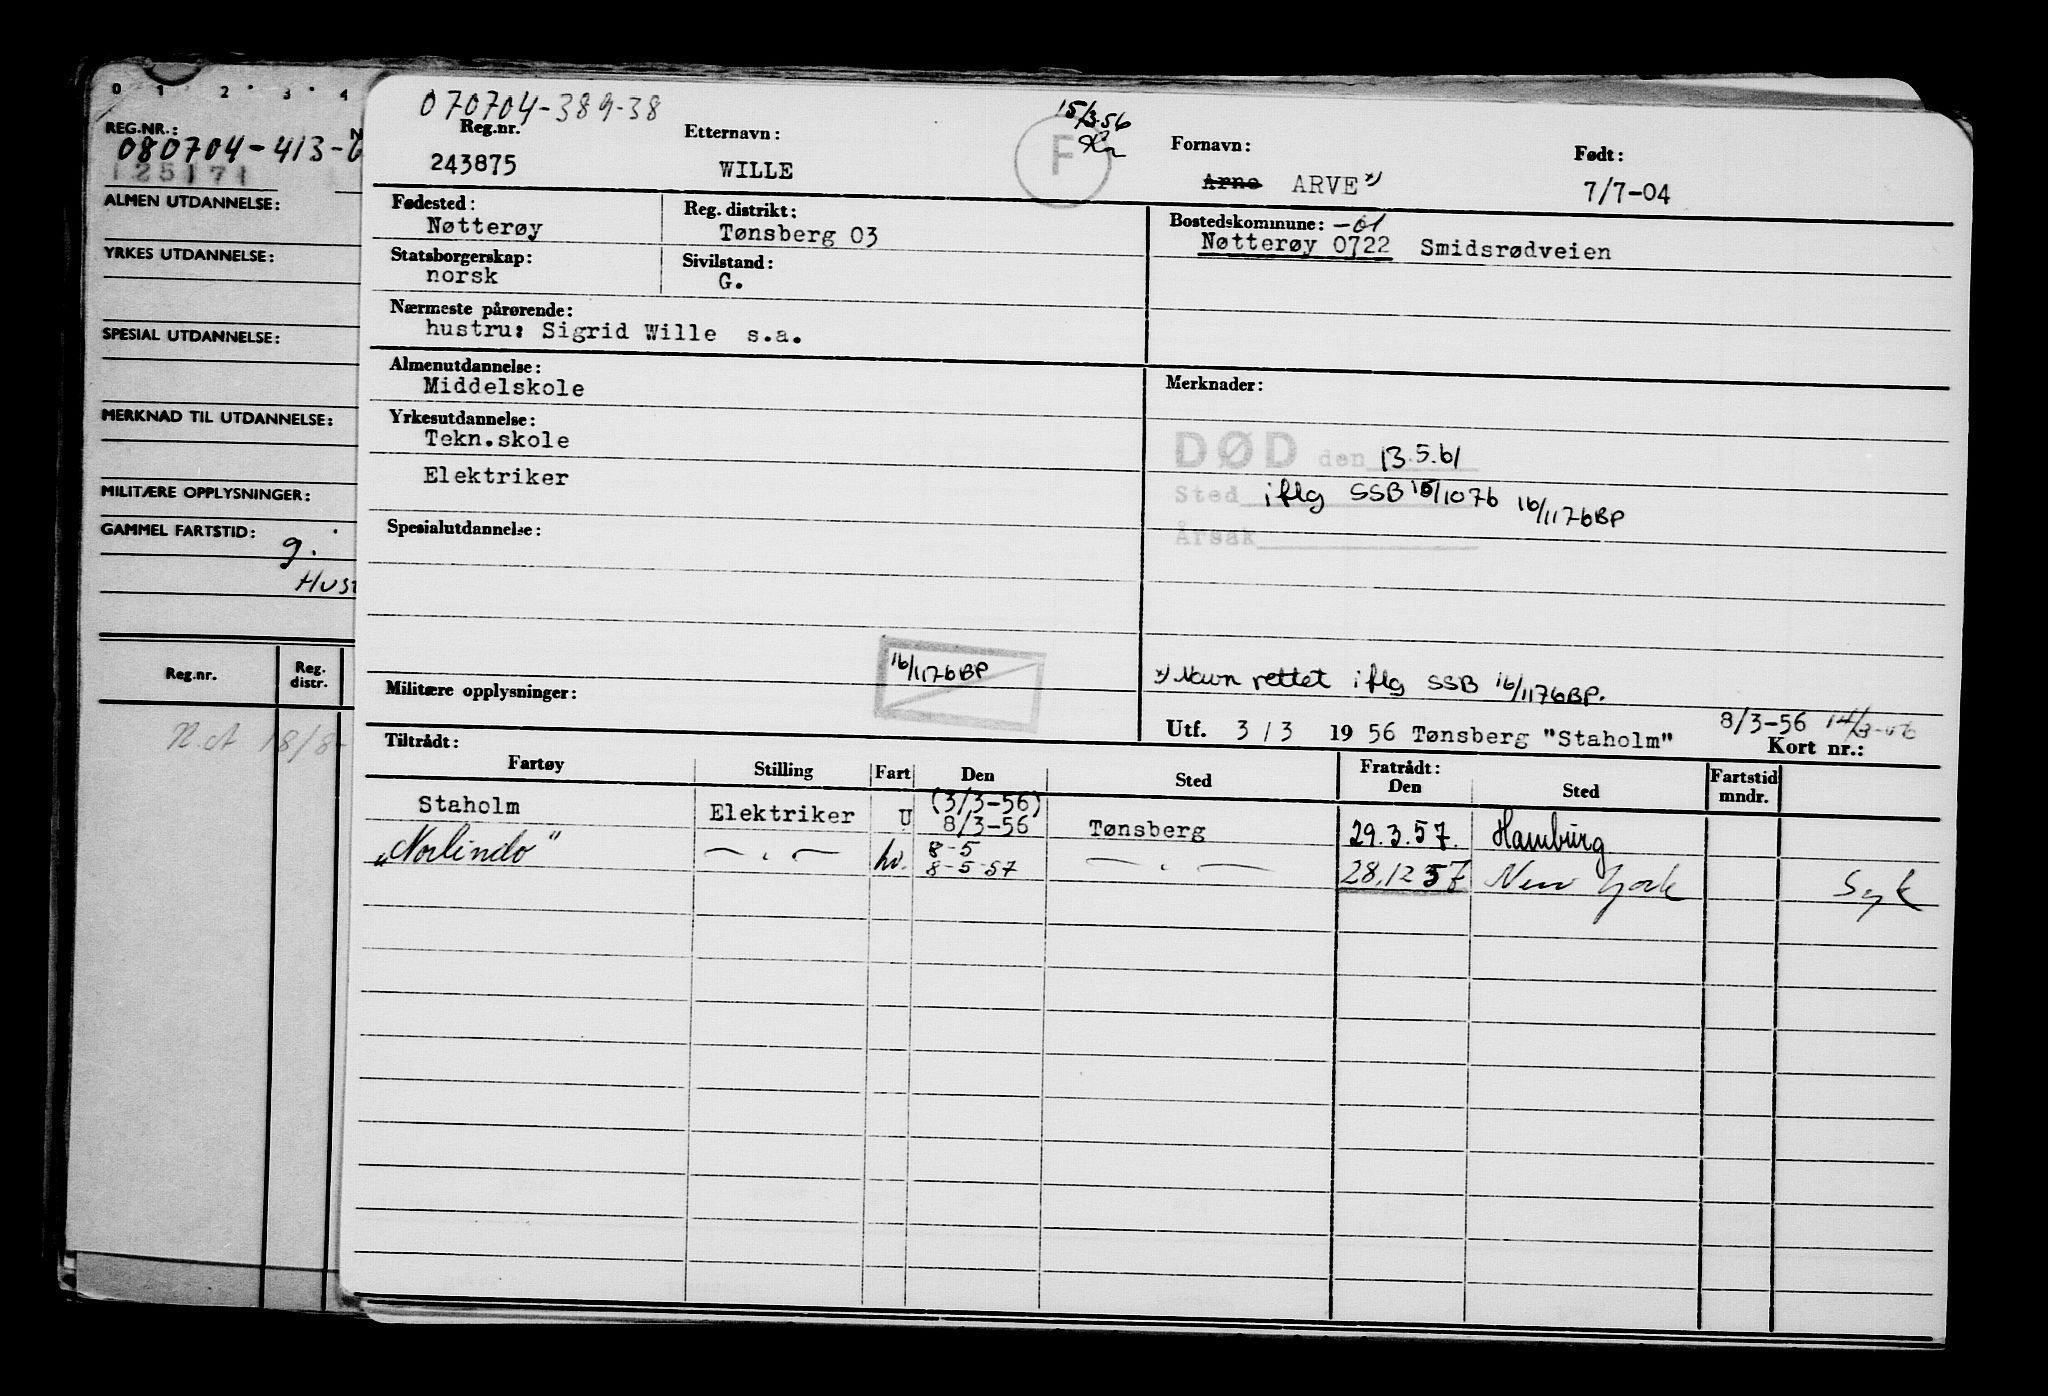 0 1 2 3 4
REG.NR.: N
080704-413-
125171
ALMEN UTDANNELSE:
YRKES UTDANNELSE:
SPESIAL UTDANNELSE:
MERKNAD TIL UTDANNELSE:
MILITÆRE OPPLYSNINGER:
GAMMEL FARTSTID: g.
Hust
Reg.nr. Reg. distr.
18/8-
070704-389-38
Reg.nr. Etternavn: 15/3.56 Fornavn: Født:
243875 WILLE F Arne ARVE x) 7/7-04
Fødested: Reg. distrikt: Bostedskommune: -01
Nøtterøy Tønsberg 03 Nøtterøy 0722 Smidsrødveien
Statsborgerskap: Sivilstand:
norsk G.
Nærmeste pårørende:
hustru: Sigrid Wille s.a.
Almenutdannelse: Merknader:
Middelskole
Yrkesutdannelse:
Tekn.skole DØD den 13.5.61
Elektriker Sted iflg SSB 15/1076 16/1176BP
Spesialutdannelse: Årsak
16/1176BP
x) Navn rettet iflg SSB 16/1176BP.
Militære opplysninger:
Utf. 3/3 1956 Tønsberg "Staholm" 8/3-56 14/3-56
Tiltrådt: Fratrådt: Kort nr.:
Fartøy Stilling Fart Den Sted Den Sted Fartstid mndr.
Staholm Elektriker U (3/3-56) 8/3-56 Tønsberg 29.3.57. Hamburg
"Norlindo" — " — hv. 8-5 8-5-57 — " — 28.12 57 New York Syk